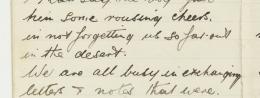 him some rousing cheers.
in not forgetting us so far out
in the desert.
We are all busy in exchanging
letters & notes that were